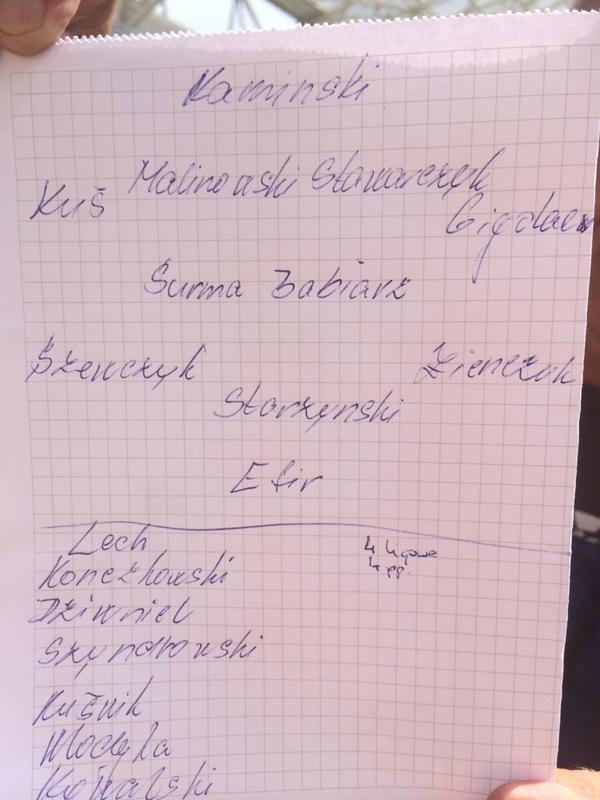 Kaminski
Malinowski Stawarczyk
Kuś
Gigolaew
Surma Babiarz
Szewczyk
Zieńczuk
Starzynski
Efir
Lech
4 ligowe
4 pp.
Konczkowski
Dziwniel
Szyndrowski
Kuświk
Włodyka
Kowalski